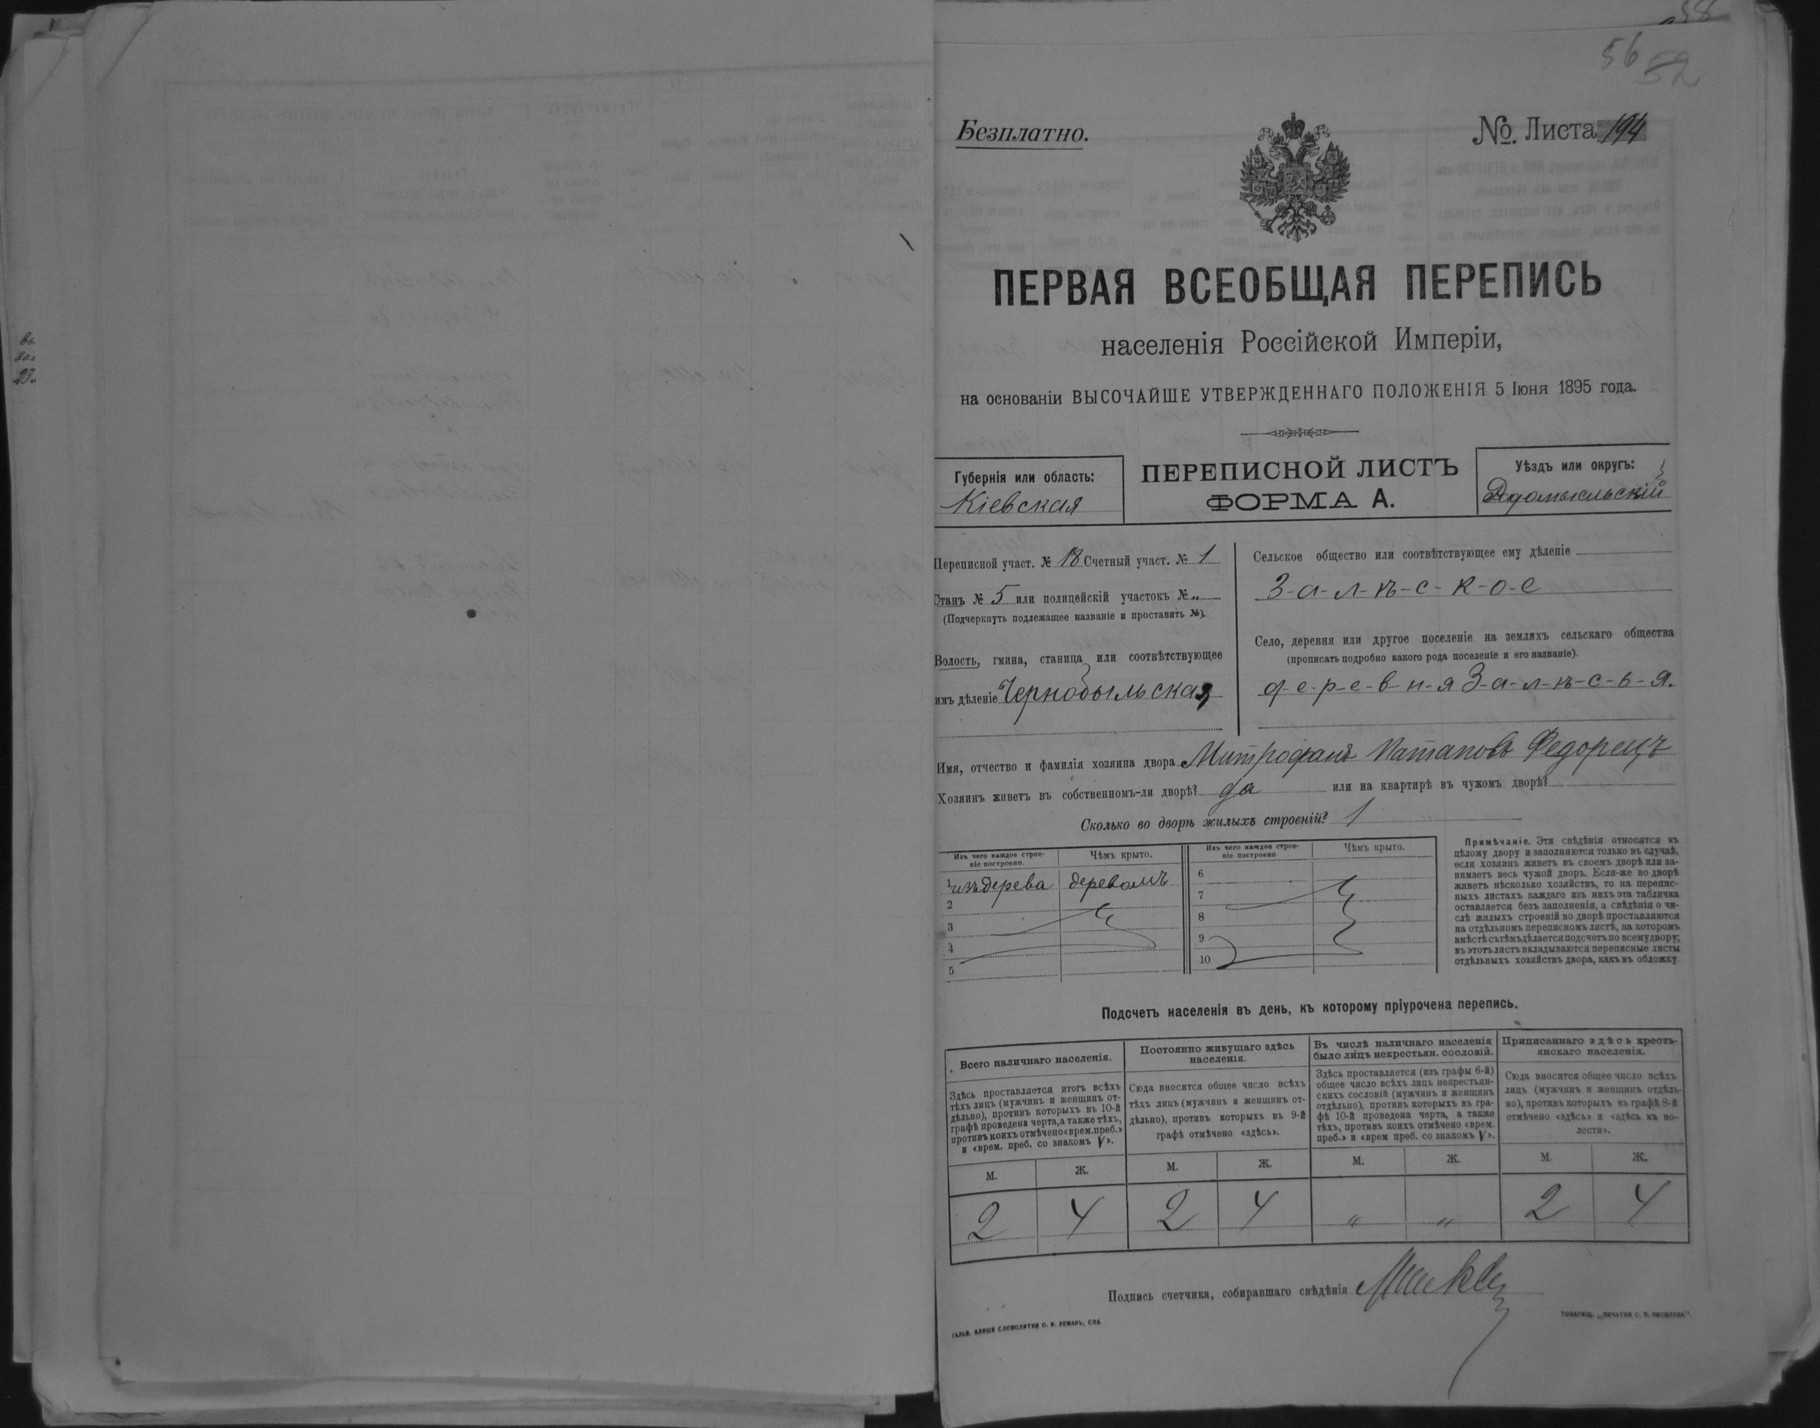 56
52
Безплатно.
№. Листа 194
ПЕРВАЯ ВСЕОБЩАЯ ПЕРЕПИСЬ
населенія Россійской Имперіи,
на основаніи ВЫСОЧАЙШЕ УТВЕРЖДЕННАГО ПОЛОЖЕНІЯ 5 Іюня 1895 года.
Губернія или область:
Кіевская
ПЕРЕПИСНОЙ ЛИСТЪ
ФОРМА А.
Уѣздъ или округъ:
Радомысльскій
Переписной участ. № 18 Счетный участ. № 1
Станъ № 5 или полицейскій участокъ № „
(Подчеркнуть подлежащее названіе и проставить №).
Волость, гмина, станица или соотвѣтствующее
имъ дѣленіе Чернобыльская
Сельское общество или соотвѣтствующее ему дѣленіе
З-а-л-ѣ-с-к-о-е
Село, деревня или другое поселеніе на земляхъ сельскаго общества
(прописать подробно какого рода поселеніе и его названіе).
д-е-р-е-в-н-я З-а-л-ѣ-с-ь-я.
Имя, отчество и фамилія хозяина двора Митрофанъ Потаповъ Федорецъ
Хозяинъ живетъ въ собственномъ-ли дворѣ? да или на квартирѣ въ чужомъ дворѣ?
Сколько во дворѣ жилыхъ строеній? 1
Изъ чего каждое строе-
ніе построено.
Чѣмъ крыто.
1 изъ дерева деревомъ
2
3
4
5
Изъ чего каждое строе-
ніе построено
Чѣмъ крыто.
6
7
8
9
10
Примѣчаніе. Эти свѣдѣнія относятся къ
цѣлому двору и заполняются только въ случаѣ,
если хозяинъ живетъ въ своемъ дворѣ или за-
нимаетъ весь чужой дворъ. Если-же во дворѣ
живетъ нѣсколько хозяйствъ, то на перепис-
ныхъ листахъ каждаго изъ нихъ эта табличка
оставляется безъ заполненія, а свѣдѣнія о чи-
слѣ жилыхъ строеній во дворѣ проставляются
на отдѣльномъ переписномъ листѣ, на которомъ
вмѣстѣ съ тѣмъ дѣлается подсчетъ по всему двору;
въ этотъ листъ вкладываются переписные листы
отдѣльныхъ хозяйствъ двора, какъ въ обложку
Подсчетъ населенія въ день, къ которому пріурочена перепись.
Всего наличнаго населенія.
Здѣсь проставляется итогъ всѣхъ
тѣхъ лицъ (мужчинъ и женщинъ от-
дѣльно), противъ которыхъ въ 10-й
графѣ проведена черта, а также тѣхъ,
противъ коихъ отмѣчено «врем. преб.»
и «врем. преб. со знакомъ V».
Постоянно живущаго здѣсь
населенія.
Сюда вносится общее число всѣхъ
тѣхъ лицъ (мужчинъ и женщинъ от-
дѣльно), противъ которыхъ въ 9-й
графѣ отмѣчено «здѣсь».
Въ числѣ наличнаго населенія
было лицъ некрестьян. сословій.
Здѣсь проставляется (изъ графы 6-й)
общее число всѣхъ лицъ некрестьян-
скихъ сословій (мужчинъ и женщинъ
отдѣльно), противъ которыхъ въ гра-
фѣ 10-й проведена черта, а также
тѣхъ, противъ коихъ отмѣчено «врем.
преб.» и «врем. преб. со знакомъ V».
Приписаннаго здѣсь кресть-
янскаго населенія.
Сюда вносится общее число всѣхъ
лицъ (мужчинъ и женщинъ отдѣль-
но), противъ которыхъ въ графѣ 8-й
отмѣчено «здѣсь» и «здѣсь къ во-
лости».
М. Ж. М. Ж. М. Ж. М. Ж.
2 4 2 4 „ „ 2 4
Подпись счетчика, собиравшаго свѣдѣнія
ГАЛЬВ. КЛИШЕ СЛОВОЛИТНИ О. И. ЛЕМАНЪ, СПБ
ТОВАРИЩ. „ПЕЧАТНЯ С. П. ЯКОВЛЕВА".